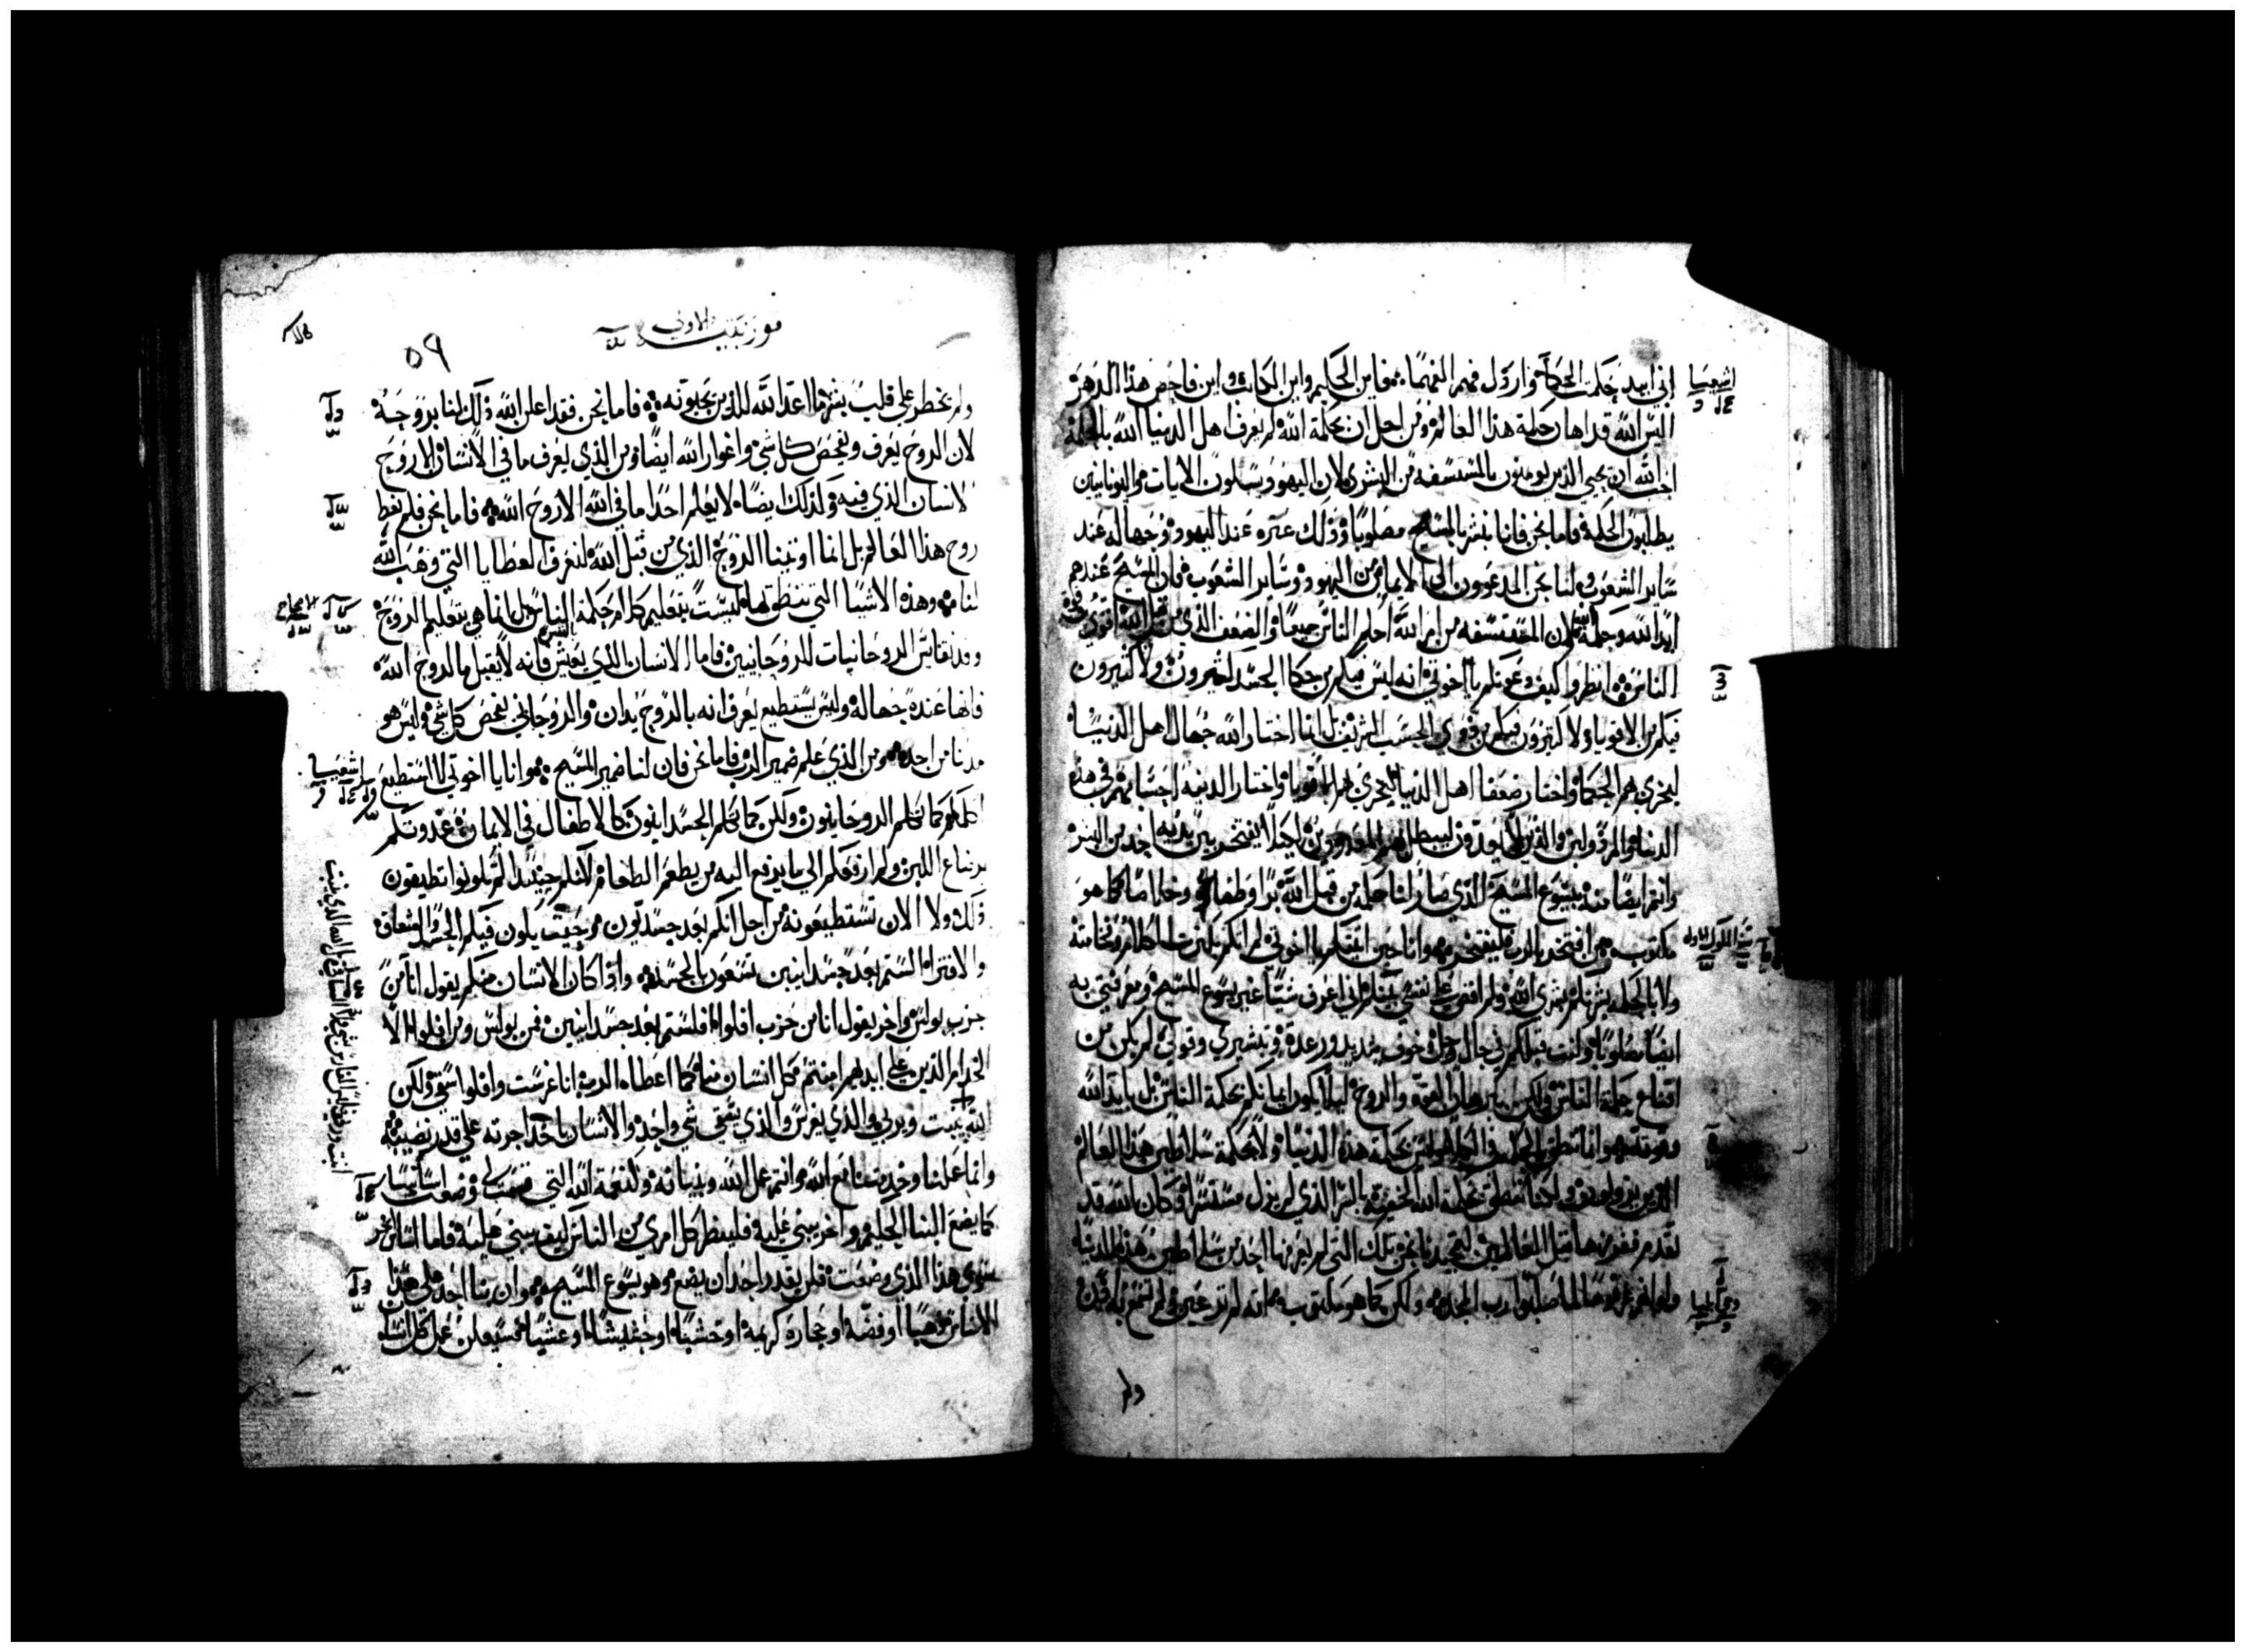 اني ابيد حكمة الحكمآ وارذل فهم الفهما فاين الحكيم واين الكاتب واين فاحص هذا الدهر
اليس الله قد اهان حكمة هذا العالم ومن اجل ان بحكمة الله لم يعرف اهل الدنيا الله بالحكمة
احب الله ان يحيي الذين يومنون بالمستسفه من البشري لان اليهود يسلون الايات واليونانيين
يطلبون الحكمة فاما نحن فانا نبشر بالمسيح مصلوبا وذلك عثره عند اليهود وجهاله عند
ساير الشعوب ولنا نحن المدعوون الي الايمان من اليهود وساير الشعوب فان المسيح عندهم
ايد الله وحكمة الله لان المستسفه من امر الله احكم من الناس جميعا والضعف الذي من قبل الله اقوي من قوة
الناس انظروا كيف دعوتكم يا اخوتي انه ليس فيكم من حكما الجسد كثيرون ولا كثيرون
فيكم من الاقويا ولا كثيرون فيكم من ذوي الحسب الشريف بل انما اختار الله جهال اهل الدنيا
ليخزي بهم الحكما واختار ضعفا اهل الدنيا ليخزي بهم الاقويا واختار الدنيه احسابهم في هذه
الدنيا والمرذولين والذين لا يعدون ليبطل بهم المعدودين ليلا يفتخر بين يديه احد من البشر
وانتم ايضا منه بيسوع المسيح الذي صار لنا حكمه من قبل الله وبرا وطهاره وخلاصا كما هو
مكتوب من افتخر بالرب فليفتخر وانا حين اتيتكم يا اخوتي لم اتكم بكثرت الكلام وفخامته
ولا بالحكمه بشرتكم بشري الله ولم اقض علي نفسي بينكم اني اعرف شيا غير يسوع المسيح ومعرفتي به
ايضا مصلوبا وانت قبلكم في حال وجل وخوف شديد ورعدة وتبشيري وقولي لم يكن من
اقناع حكمة الناس ولكن ببرهان القوة والروح ليلا يكون ايمانكم بحكمة الناس بل بايد الله
وقوته وانما ننطق بالحكمة في الكاملين ليس بحكمة هذه الدنيا ولا بحكمة سلاطين هذا العالم
الذين يزولون ولكنا ننطق بحكمة الله الخفية بالسر الذي لم يزل مستترا وكان الله قد
تقدم ففرزها قبل العالمين لتمجيدنا نحن تلك التي لم يعرفها احد من سلاطين هذه الدنيا
ولو انهم عرفوها لما صلبوا رب المجد ولكن كما هو مكتوب انه لم تر عين ولم تسمع به اذن
ولم
اشعيا
قورنتيه الاولي
٥٩
ولم يخطر علي قلب بشر ما اعد الله للذين يحبونه فاما نحن فقد اعلن الله ذلك لنا بروحه
لان الروح يعرف ويفحص كل شي واغوار الله ايضا ومن الذي يعرف ما في الانسان الا روح
الانسان الذي فيه ولذلك ايضا لا يعلم احد ما في الله الا روح الله فاما نحن فلم نعط
روح هذا العالم بل انما اوتينا الروح الذي من قبل الله لنعرف العطايا التي وهب الله
لنا وهذه الاشيا التي ننطق بها ليست بتعليم كلام حكمة الناس بل انما هو بتعليم الروح
وقد نقايس الروحانيات للروحانيين فاما الانسان الذي يعيش بالنفس فانه لا يقبل ما لروح الله
فانها عنده جهاله وليس يستطيع يعرف انه بالروح يدان والروحاني يفحص كل شي وليس هو
مدنا من احد ومن الذي علم ضمير الرب فاما نحن فان لنا ضمير المسيح وانا يا اخوتي لا استطيع
اكلمكم كما اكلم الروحانيون ولكن كما اكلم الجسدانيون كالاطفال في الايمان غدوتكم
برضاع اللبن ولم ارفعكم الي ما يدفع اليه من يطعم الطعام لانكم حينيد لم تكونوا تطيقون
ذلك ولا الان تستطيعونه من اجل انكم بعد جسديون وحيت يكون فيكم الحسد والشقاق
والافتراء الستم بعد جسدانيين تسعون بالجسد واذا كان الانسان منكم يقول انا من
حزب بولس واخر يقول انا من حزب افلوا افلستم بعد جسدانيين فمن بولس ومن افلوا الا
الخدام الذين علي ايديهم امنتم وكل انسان منا كما اعطاه الرب انا غرست وافلوا سقي ولكن
الله ينبت ويربي والذي يغرس والذي يسقي شي واحد والانسان ياخذ اجرته علي قدر نصبه
وانما عملنا وخدمتنا مع الله وانتم عمل الله وبنيانه ولنعمة الله التي قسمت لي وضعت اساسا
كما يضع البنا الحكيم واخر يبني عليه فلينظر كل امري من الناس كيف يبني عليه فاما اساس اخر
سوي هذا الذي وضعت فلن يقدر احد ان يضع وهو يسوع المسيح وان بنا احد علي هذا
الاساس ذهبا او فضه او حجارة كريمه او خشبا او حشيشا او عشبا فسيعلن عمل كل انسان
اشعيا